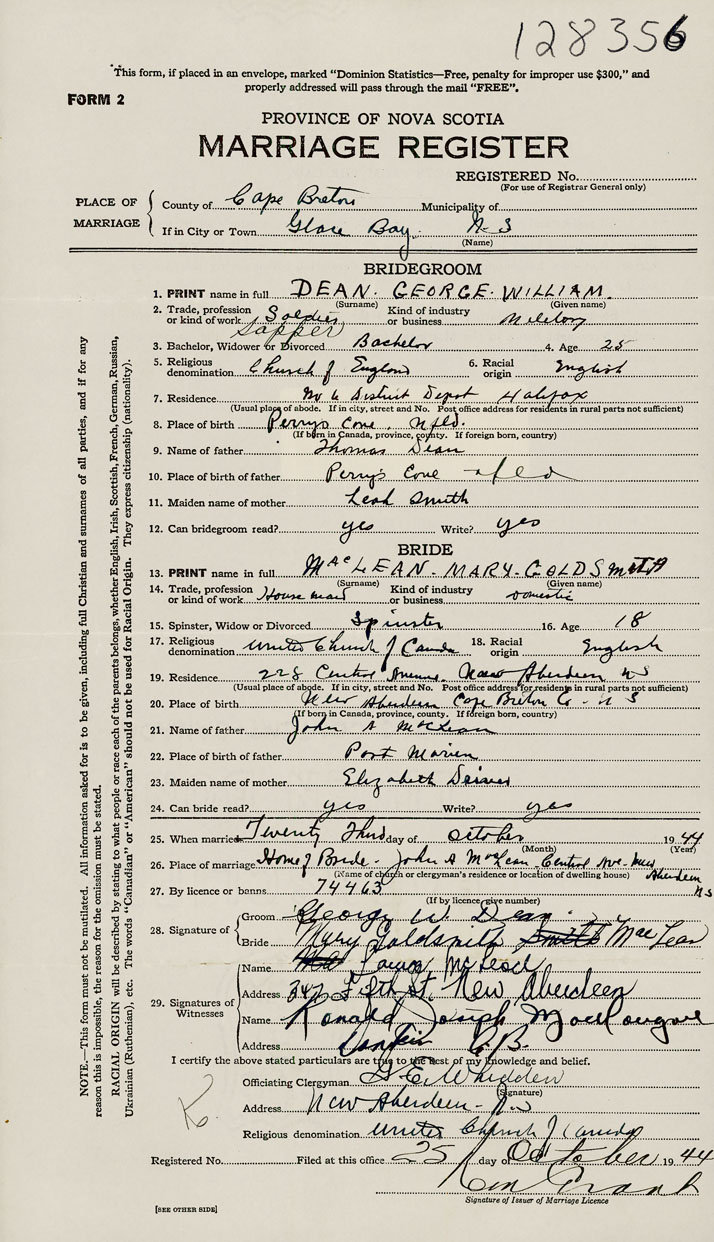 128356
"This form, if placed in an envelope, marked "Dominion Statistics—Free, penalty for improper use $300," and
properly addressed will pass through the mail "FREE".
FORM 2
PROVINCE OF NOVA SCOTIA
MARRIAGE REGISTER
REGISTERED No.
(For use of Registrar General only)
PLACE OF MARRIAGE
County of Cape Breton Municipality of
If in City or Town Glace Bay N-S
(Name)
BRIDEGROOM
1. PRINT name in full DEAN. GEORGE. WILLIAM.
(Surname) (Given name)
2. Trade, profession or kind of work Soldier Sapper Kind of industry or business Military
3. Bachelor, Widower or Divorced Bachelor 4. Age 25
5. Religious denomination Church of England 6. Racial origin English
7. Residence No 6 District Depot Halifax
(Usual place of abode. If in city, street and No. Post office address for residents in rural parts not sufficient)
8. Place of birth Perrys Cove, Nfld.
(If born in Canada, province, county. If foreign born, country)
9. Name of father Thomas Dean
10. Place of birth of father Perrys Cove nfld
11. Maiden name of mother Leah Smith
12. Can bridegroom read? yes Write? yes
BRIDE
13. PRINT name in full MacLEAN-MARY-GOLDSmith
(Surname) (Given name)
14. Trade, profession or kind of work House maid Kind of industry or business Domestic
15. Spinster, Widow or Divorced Spinster 16. Age 18
17. Religious denomination United Church of Canada 18. Racial origin English
19. Residence 228 Central Avenue New Aberdeen NS
(Usual place of abode. If in city, street and No. Post office address for residents in rural parts not sufficient)
20. Place of birth New Aberdeen Cape Breton Co - N S
(If born in Canada, province, county. If foreign born, country)
21. Name of father John A McLean
22. Place of birth of father Port Morien
23. Maiden name of mother Elizabeth
24. Can bride read? yes Write? yes
25. When married Twenty Third day of October 1944
(Month) (Year)
26. Place of marriage Home of Bride - John A McLean - Central Ave - New Aberdeen N S
(Name of church or clergyman's residence or location of dwelling house)
27. By licence or banns 74463
(If by licence give number)
28. Signature of
Groom George W. Dean
Bride Mary Goldsmith Smith MacLean
29. Signatures of Witnesses
Name McLeod
Address 342 Fifth St. New Aberdeen
Name Ronald Joseph MacDougall
Address C.B.
I certify the above stated particulars are true to the best of my knowledge and belief.
Officiating Clergyman G. E. Whidden
(Signature)
Address New Aberdeen - N.S
Religious denomination United Church of Canada
Registered No. Filed at this office 25 day of October 1944
Signature of Issuer of Marriage Licence
[SEE OTHER SIDE]
NOTE.—This form must not be mutilated. All information asked for is to be given, including full Christian and surnames of all parties, and if for any
reason this is impossible, the reason for the omission must be stated.
RACIAL ORIGIN will be described by stating to what people or race each of the parents belongs, whether English, Irish, Scottish, French, German, Russian,
Ukrainian (Ruthenian), etc. The words "Canadian" or "American" should not be used for Racial Origin. They express citizenship (nationality).